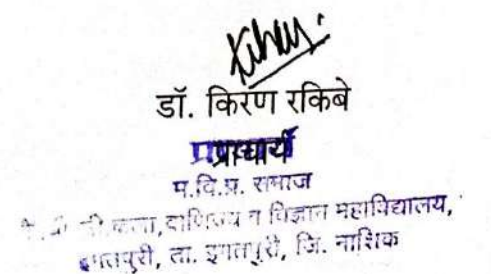 डॉ. किरण रकिबे
प्राचार्य
म.वि.प्र. समाज
कला, वाणिज्य व विज्ञान महाविद्यालय,
इगतपुरी, ता. इगतपुरी, जि. नाशिक